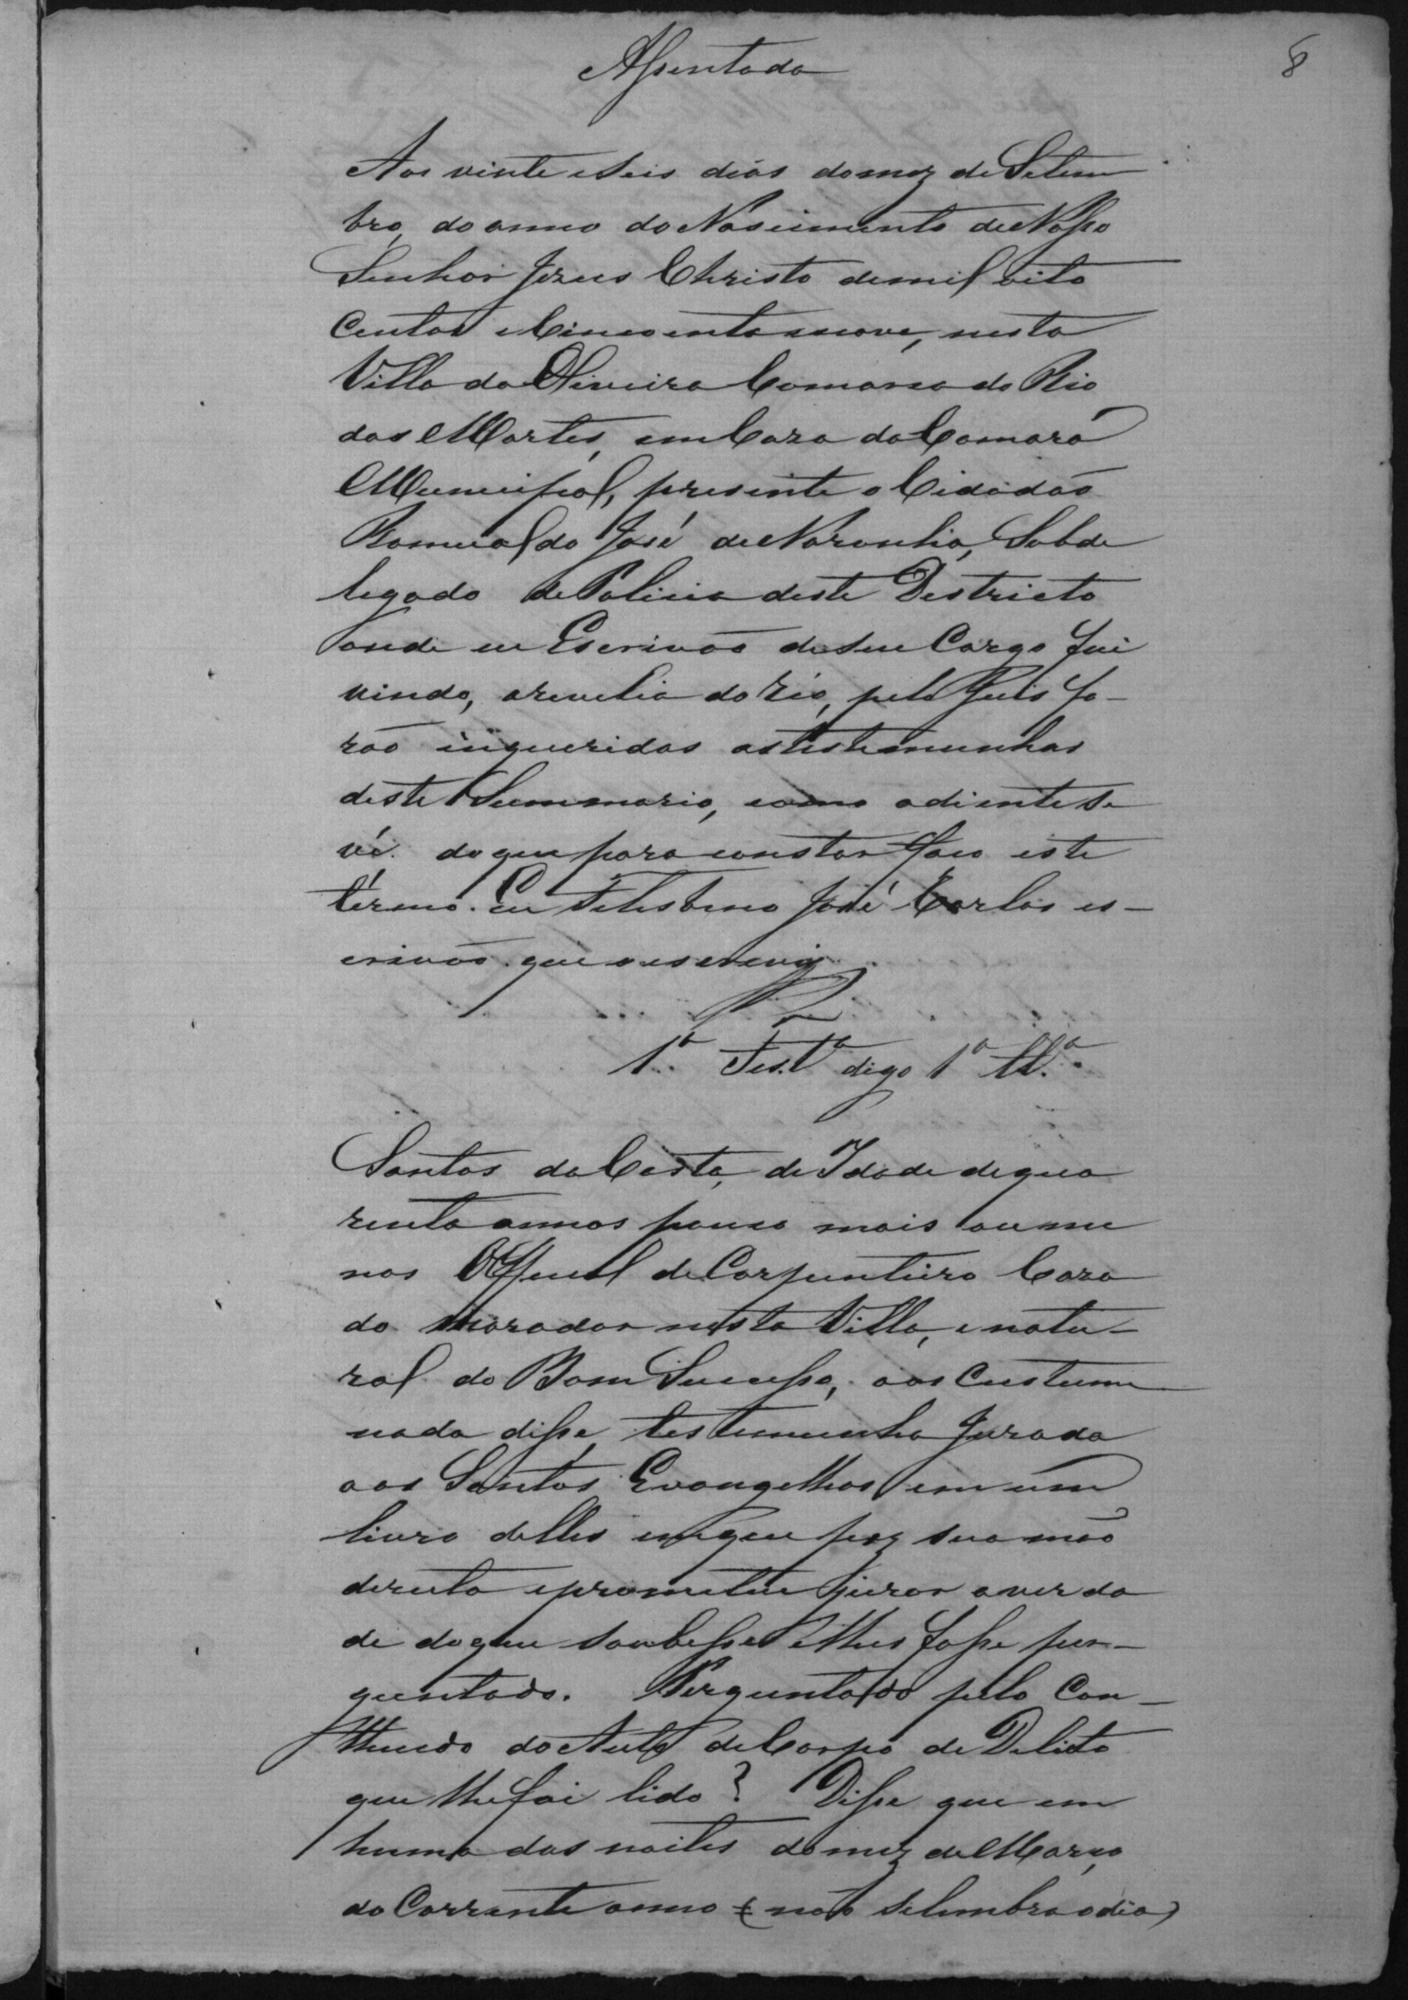 8
Assentada
Aos vinte e seis dias do mez de Setem
bro, do anno do Nascimento de Nosso
Senhor Jezus Christo de mil oito
Centos e Cincoenta e nove, nesta
Villa da Oliveira Comarca do Rio
das Mortes, em Caza da Camara
Municipal, presente o Cidadão
Romualdo José de Noronha, Subde
legado de Policia deste Districto
onde eu Escrivão de seu Cargo fui
vindo, a revelia do réo, pelo Juis fo-
rão inqueridas as testemunhas
deste Summario, como adiente se
vê. do que para constar faço este
termo. Eu Felisbino José Carlos es-
crivão que o escrevy
1ª Test.ª digo 1ª Tt.ª
Santos da Costa, de Idade de qua
renta annos pouco mais ou me
nos Official de Carpinteiro Caza
do morador nesta Villa, e natu-
ral do Bom Sucesso, aos Custume
nada disse, testemunha Jurada
aos Santos Evangelhos em um
livro delles em que poz sua mão
direita e prometeu jurar a verda
de do que soubesse e lhes fosse per-
guntado. Perguntado pelo Con-
theudo do Auto de Corpo de Delicto
que lhe foi lido? Disse que em
huma das noites do mez de Março
do Corrente anno (não se lembra o dia)